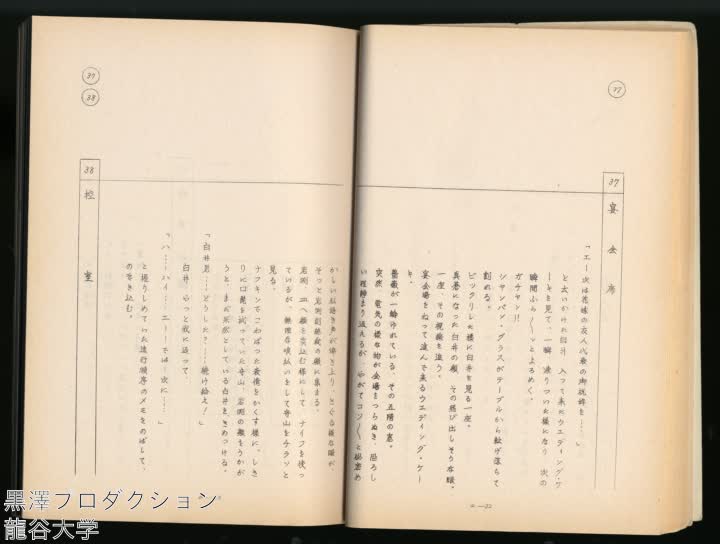 37
37
宴会席
「エー次は花嫁の友人代表の御祝辞を……」
と云いかけた白井、入って来たウエディング・ケ
ーキを見て、一瞬、凍りついた様になり、次の
瞬間ふら〱ッとよろめく。
ガチャン!!
シャンパン・グラスがテーブルから転げ落ちて
割れる。
ビックリした様に白井を見る一座。
真蒼になった白井の顔、その飛び出しそうな眼。
一座、その視線を追う。
宴会場をねって運んで来るウエディング・ケー
キ。
薔薇が一輪飾られている、その五階の窓。
突然、電気の様な物が会場をつらぬき、恐ろし
い程静まり返えるが、やがてコソ〱と
かしい私語き声が湧き上り、とぐる様な眼が、
そっと岩淵副総裁の顔に集まる。
岩淵、皿へ顔を突込む様にして、ナイフを使っ
ているが、無理な咳払いをして守山をチラッと
見る。
ナフキンでこわばった表情をかくす様に、しき
りに口髭を拭っていた守山、岩淵の顔をうかが
うと、まだ茫然としている白井をきめつける。
「白井君……どうした?……続け給え!」
白井、やっと我に返って、
「ハ……ハイ……エー……では……次に……」
と握りしめていた進行順序のメモをのばして、
のぞき込む。
37
38
38
控室
B—22
黒澤プロダクション
龍谷大学